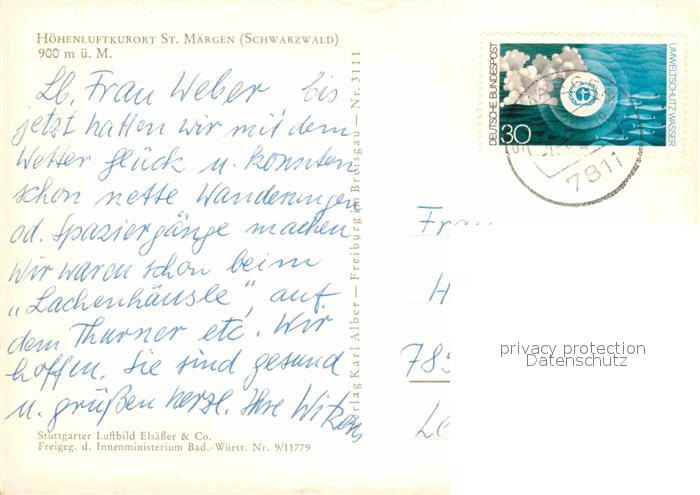 HÖHENLUFTKURORT ST. MÄRGEN (SCHWARZWALD)
900 m ü. M.
Lb. Frau Weber, bis
jetzt hatten wir mit dem
Wetter Glück u. konnten
schon nette Wanderungen
od. Spaziergänge machen
Wir waren schon beim
„Lachenhäusle", auf
dem Thurner etc. Wir
hoffen, Sie sind gesund
u. grüßen herzl. Ihre
Stuttgarter Luftbild Elsäßer & Co.
Freigeg. d. Innenministerium Bad.-Württ. Nr. 9/11779
Verlag Karl Alber — Freiburg im Breisgau — Nr. 3111
DEUTSCHE BUNDESPOST
30
UMWELTSCHUTZ WASSER
7811
privacy protection
Datenschutz